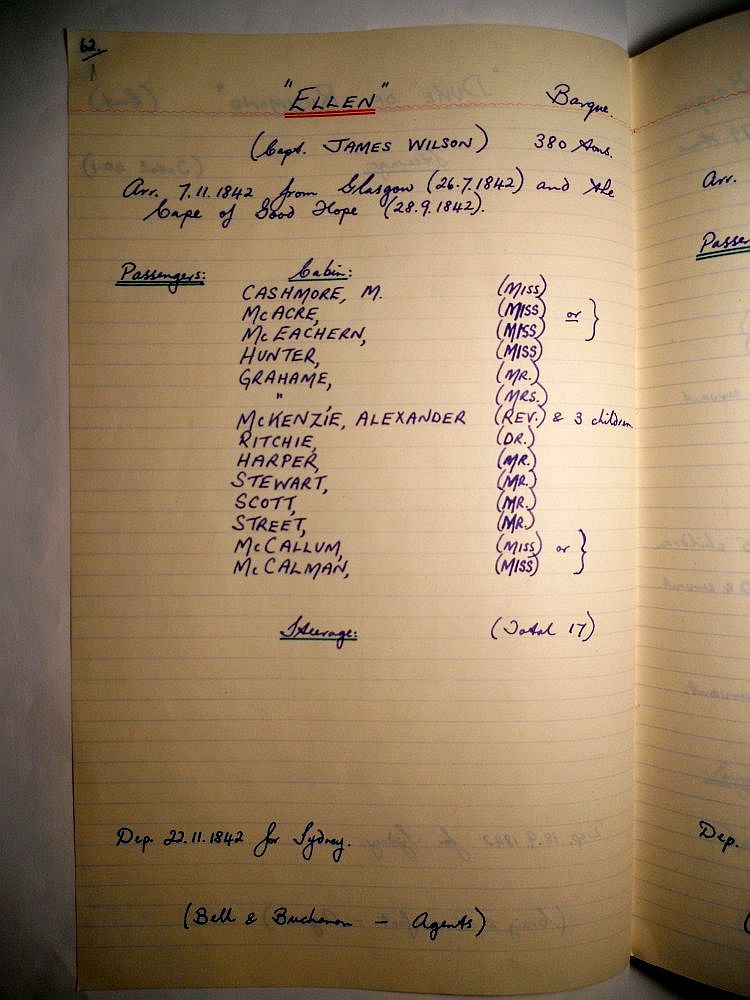 62.
"ELLEN" Barque.
(Capt. JAMES WILSON) 380 tons.
Arr. 7.11.1842 from Glasgow (26.7.1842) and the
Cape of Good Hope (28.9.1842).
Passengers: Cabin:
CASHMORE, M. (MISS)
McACRE, (MISS) or }
McEACHERN, (MISS)
HUNTER, (MISS)
GRAHAME, (MR.)
" (MRS.)
McKENZIE, ALEXANDER (REV.) & 3 children
RITCHIE, (DR.)
HARPER, (MR.)
STEWART, (MR.)
SCOTT, (MR.)
STREET, (MR.)
McCALLUM, (MISS) or }
McCALMAN, (MISS)
Steerage: (Total 17)
Dep. 22.11.1842 for Sydney.
(Bell & Buchanan - Agents)
Arr.
Passen
Dep.